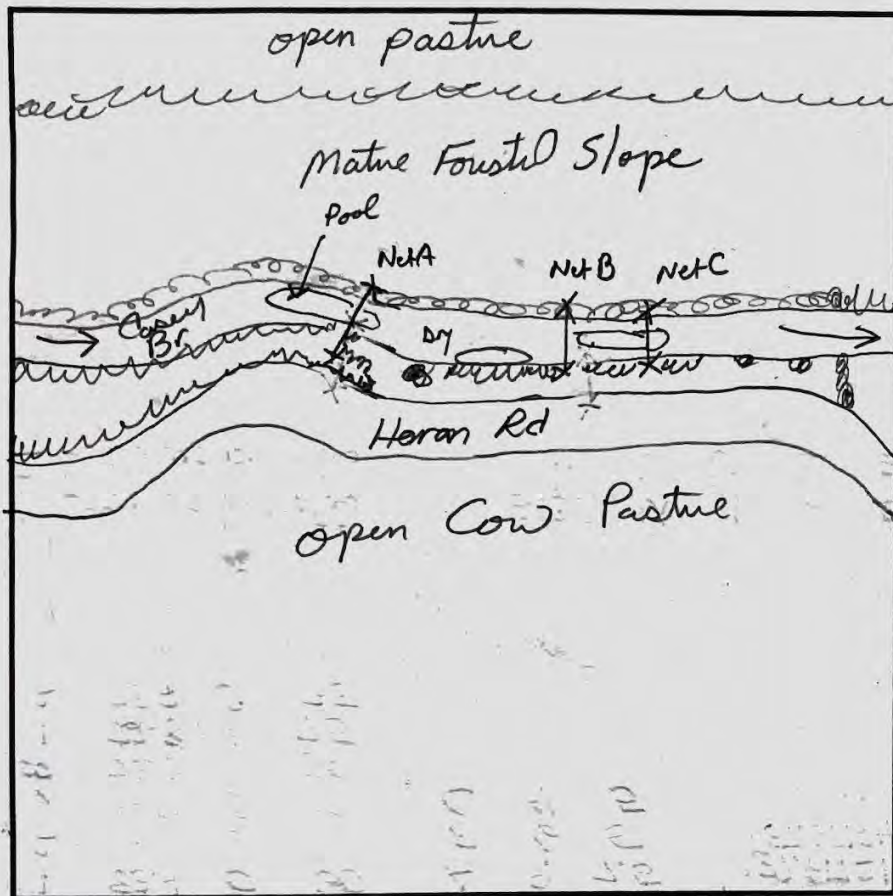 open pasture
Mature Forested Slope
Pool
Net A
Net B
Net C
Casey
Br
Dry
Heron Rd
open Cow Pasture